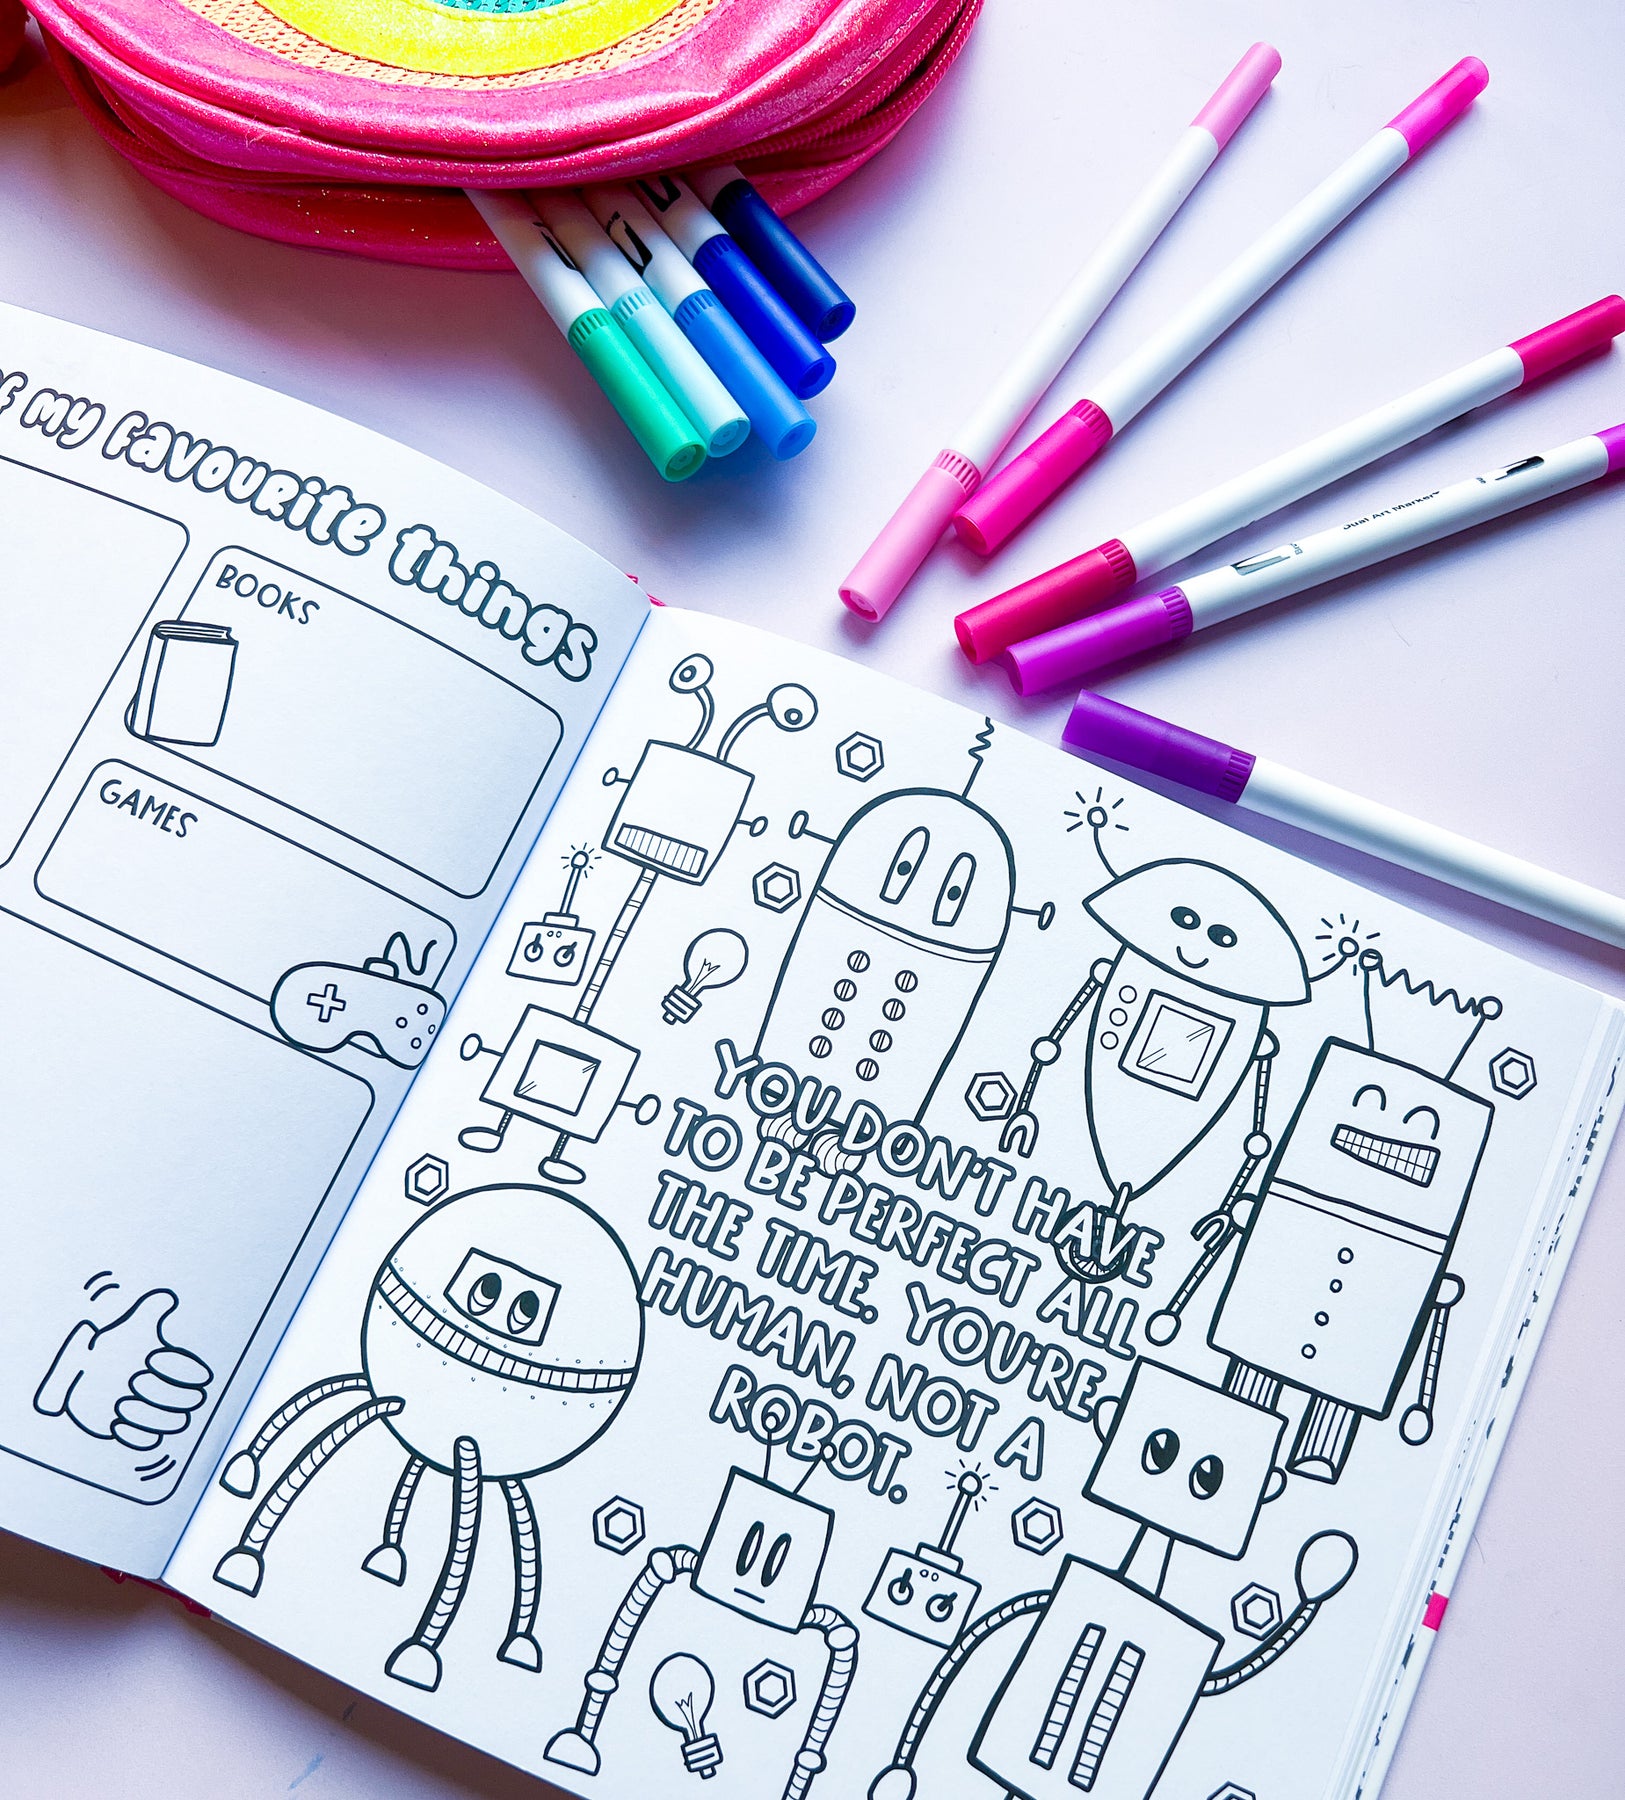 of my favourite things
BOOKS
GAMES
YOU DON'T HAVE
TO BE PERFECT ALL
THE TIME. YOU'RE
HUMAN, NOT A
ROBOT.
Dual Art Markers